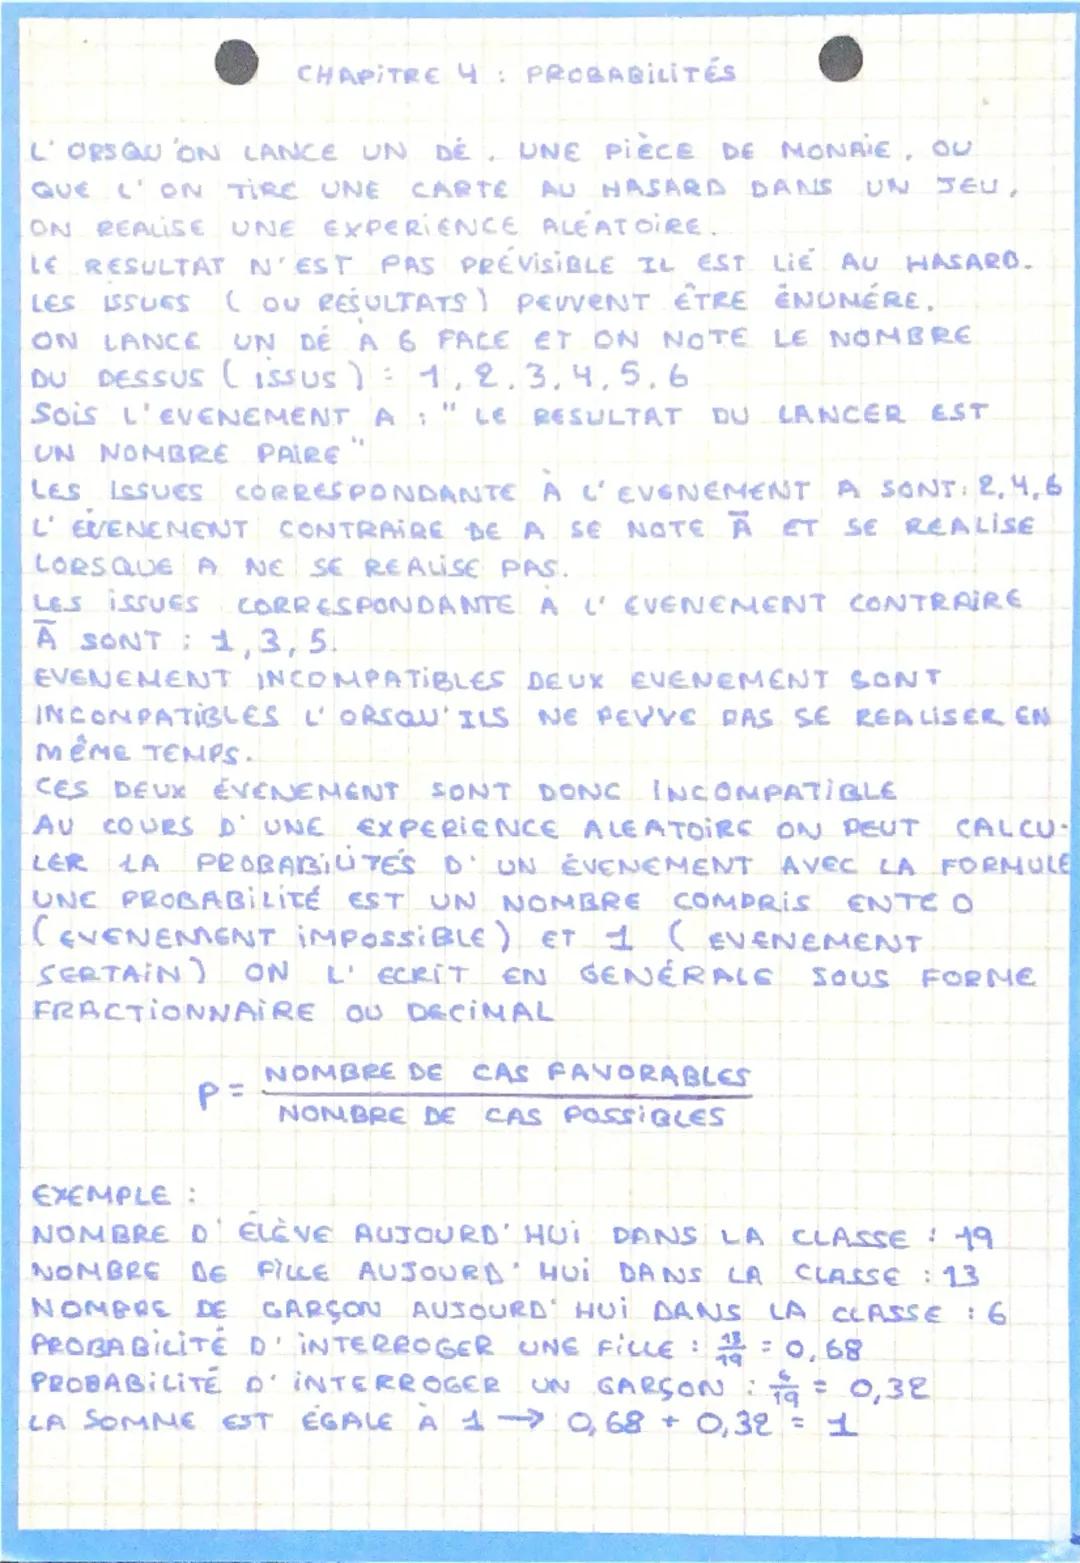 CHAPITRE 4 : PROBABILITÉS
L'ORSQU'ON LANCE UN DÉ, UNE PIÈCE DE MONAIE, OU
QUE L'ON TIRE UNE CARTE AU HASARD DANS UN JEU,
ON REALISE UNE EXPERIENCE ALÉATOIRE.
LE RESULTAT N'EST PAS PRÉVISIBLE IL EST LIÉ AU HASARD.
LES ISSUES (OU RESULTATS) PEUVENT ÊTRE ÉNUMÉRE.
ON LANCE UN DÉ À 6 FACE ET ON NOTE LE NOMBRE
DU DESSUS (ISSUS) : 1, 2, 3, 4, 5, 6
SOIS L'EVENEMENT A : "LE RESULTAT DU LANCER EST
UN NOMBRE PAIRE"
LES ISSUES CORRESPONDANTE À L'EVENEMENT A SONT: 2,4,6
L'EVENEMENT CONTRAIRE DE A SE NOTE Ā ET SE REALISE
LORSQUE A NE SE REALISE PAS.
LES ISSUES CORRESPONDANTE À L'EVENEMENT CONTRAIRE
Ā SONT : 1, 3, 5.
EVENEMENT INCOMPATIBLES DEUX EVENEMENT SONT
INCOMPATIBLES L'ORSQU'ILS NE PEUVE PAS SE REALISER EN
MÊME TEMPS.
CES DEUX ÉVENEMENT SONT DONC INCOMPATIBLE
AU COURS D'UNE EXPERIENCE ALEATOIRE ON PEUT CALCU-
LER LA PROBABILITÉS D'UN ÉVENEMENT AVEC LA FORMULE
UNE PROBABILITÉ EST UN NOMBRE COMPRIS ENTE 0
(EVENEMENT IMPOSSIBLE) ET 1 (EVENEMENT
SERTAIN) ON L'ECRIT EN GENÉRALE SOUS FORME
FRACTIONNAIRE OU DECIMAL
P = NOMBRE DE CAS FAVORABLES
NOMBRE DE CAS POSSIBLES
EXEMPLE :
NOMBRE D'ÉLÈVE AUJOURD'HUI DANS LA CLASSE : 19
NOMBRE DE FILLE AUJOURD'HUI DANS LA CLASSE : 13
NOMBRE DE GARÇON AUJOURD'HUI DANS LA CLASSE : 6
PROBABILITÉ D'INTERROGER UNE FILLE : 13/19 = 0,68
PROBABILITÉ D'INTERROGER UN GARÇON : 6/19 = 0,32
LA SOMME EST ÉGALE À 1 → 0,68 + 0,32 = 1